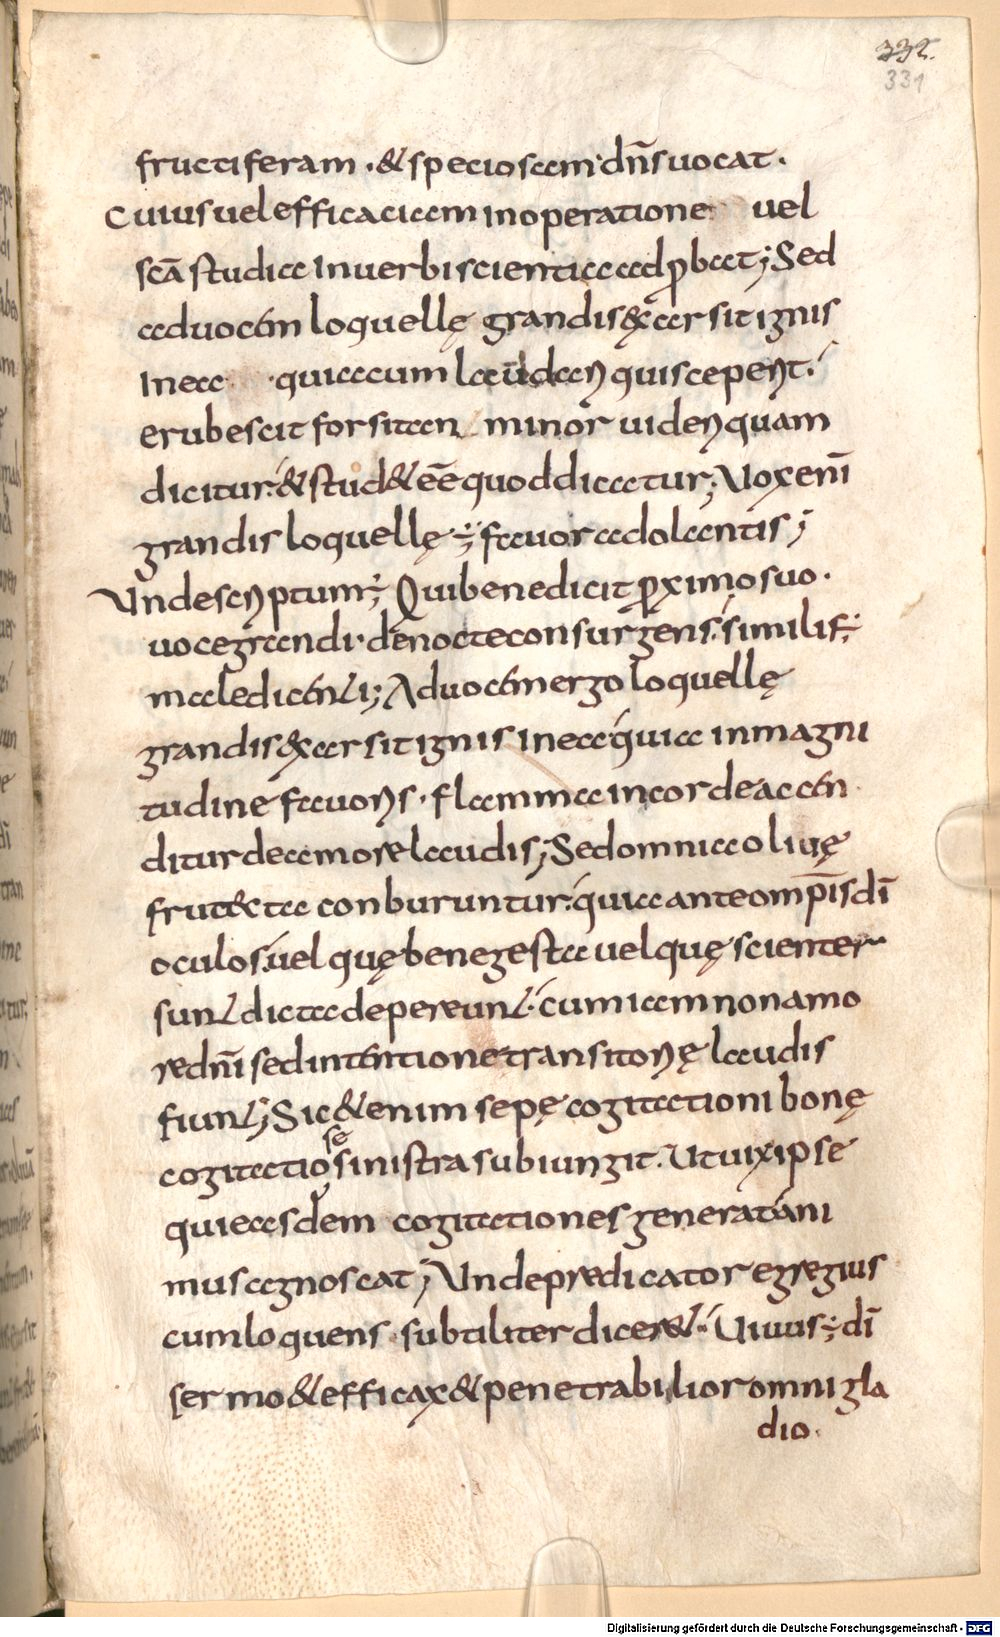 332.
331
fructiferam · & speciosam dn̄s uocat ·
Cuius uel efficaciam in operatione uel
scā studia in uerbi scientia ad ꝓbat; Sed
ad uocem loquellę grandis & arsit ignis
in ea quia cum laudari quis ceperit·
erubescit forsitan minor uideri quam
dicitur· & stud& eē quod dicatur; Uox enī
grandis loquellę ÷ fauor adolantis;
Unde scriptum ÷; Qui benedicit ꝓximo suo ·
uoce grandi· de nocte consurgens· similis ÷
maledicenti; Ad uocem ergo loquellę
grandis & arsit ignis in ea· quia in magni
tudine fauoris · flamma in corde accen
ditur de amore laudis; Sed omnia oliuę
frut&ta conburuntur· quia ante omp̄is dī
oculos· uel quę bene gesta uel quę scienter
sunt dicta depereunt· cum iam non amo
re dn̄i sed intentione transitorię laudis
fiunt; Sic & enim sepę cogitationi bonę
cogitatio se sinistra subiungit. Ut uix ipse
qui easdem cogitationes generat ani
mus agnoscat; Unde predicator egregius
cum loquens · subtiliter dicer&· Uiuus ÷ dī
sermo & efficax & penetrabilior omni gla
dio.
Digitalisierung gefördert durch die Deutsche Forschungsgemeinschaft - DFG